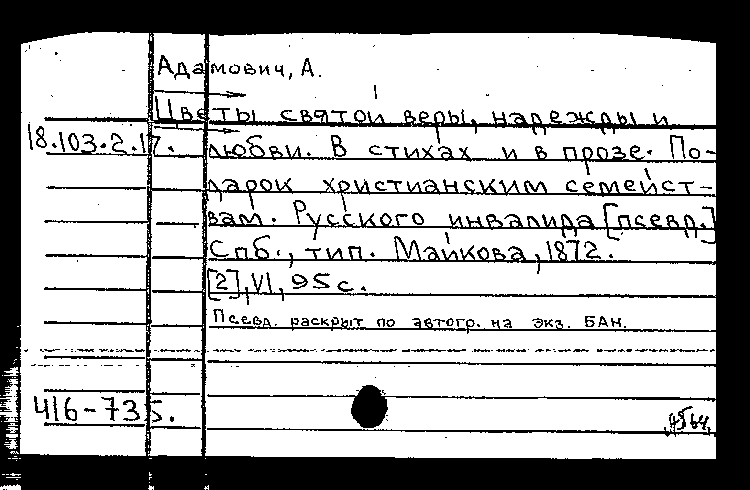 Адамович, А.
Цветы святой веры, надежды и
18.103.2.17. любви. В стихах и в прозе. По-
дарок христианским семейст-
вам. Русского инвалида [псевд.]
Спб., тип. Майкова, 1872.
[2], VI, 95 с.
Псевд. раскрыт по автогр. на экз. БАН.
416-735.